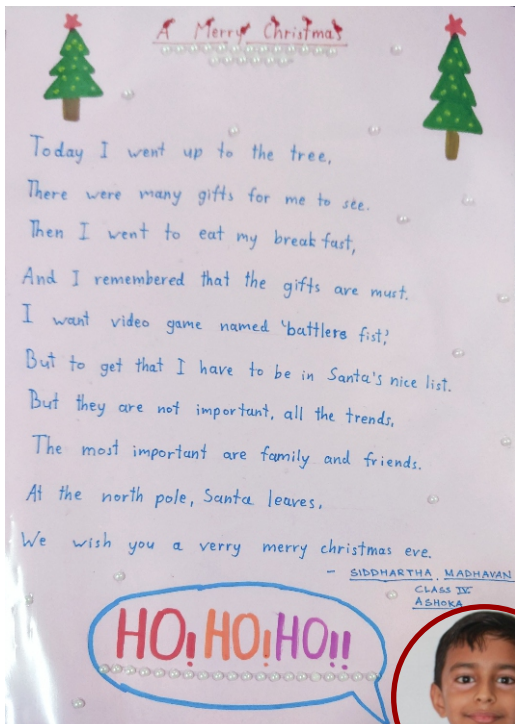 A Merry Christmas
Today I went up to the tree,
There were many gifts for me to see.
Then I went to eat my breakfast,
And I remembered that the gifts are must.
I want video game named 'battlers fist,'
But to get that I have to be in Santa's nice list.
But they are not important, all the trends,
The most important are family and friends.
At the north pole, Santa leaves,
We wish you a verry merry christmas eve.
- SIDDHARTHA. MADHAVAN
CLASS IV
ASHOKA
HO! HO! HO!!